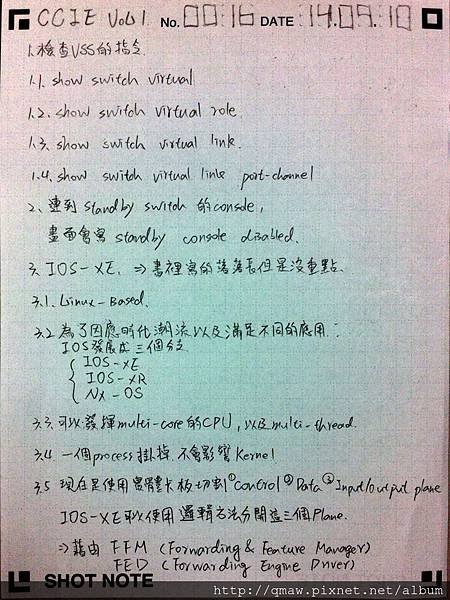 CCIE Vol.1 No. 00:16 DATE 14.09.10
1.檢查VSS的指令.
1.1. show switch virtual
1.2. show switch virtual role.
1.3. show switch virtual link.
1.4. show switch virtual link port-channel
2. 連到 standby switch 的console,
畫面會寫 standby console disabled.
3. IOS-XE. ⇒ 書裡寫的落落長但是沒重點.
3.1. Linux-Based.
3.2 為了因應時代潮流以及滿足不同的應用:
IOS發展成三個分支.
IOS-XE
IOS-XR
NX-OS
3.3. 可以發揮multi-core的CPU, 以及multi-thread.
3.4. 一個process掛掉 不會影響Kernel
3.5 現在是使用實體卡板切割①Control②Data③Input/output plane
IOS-XE可以使用邏輯方法分開這三個Plane.
⇒藉由 FFM (Forwarding & Feature Manager)
FED (Forwarding Engine Driver)
SHOT NOTE
http://qmaw.pixnet.net/album